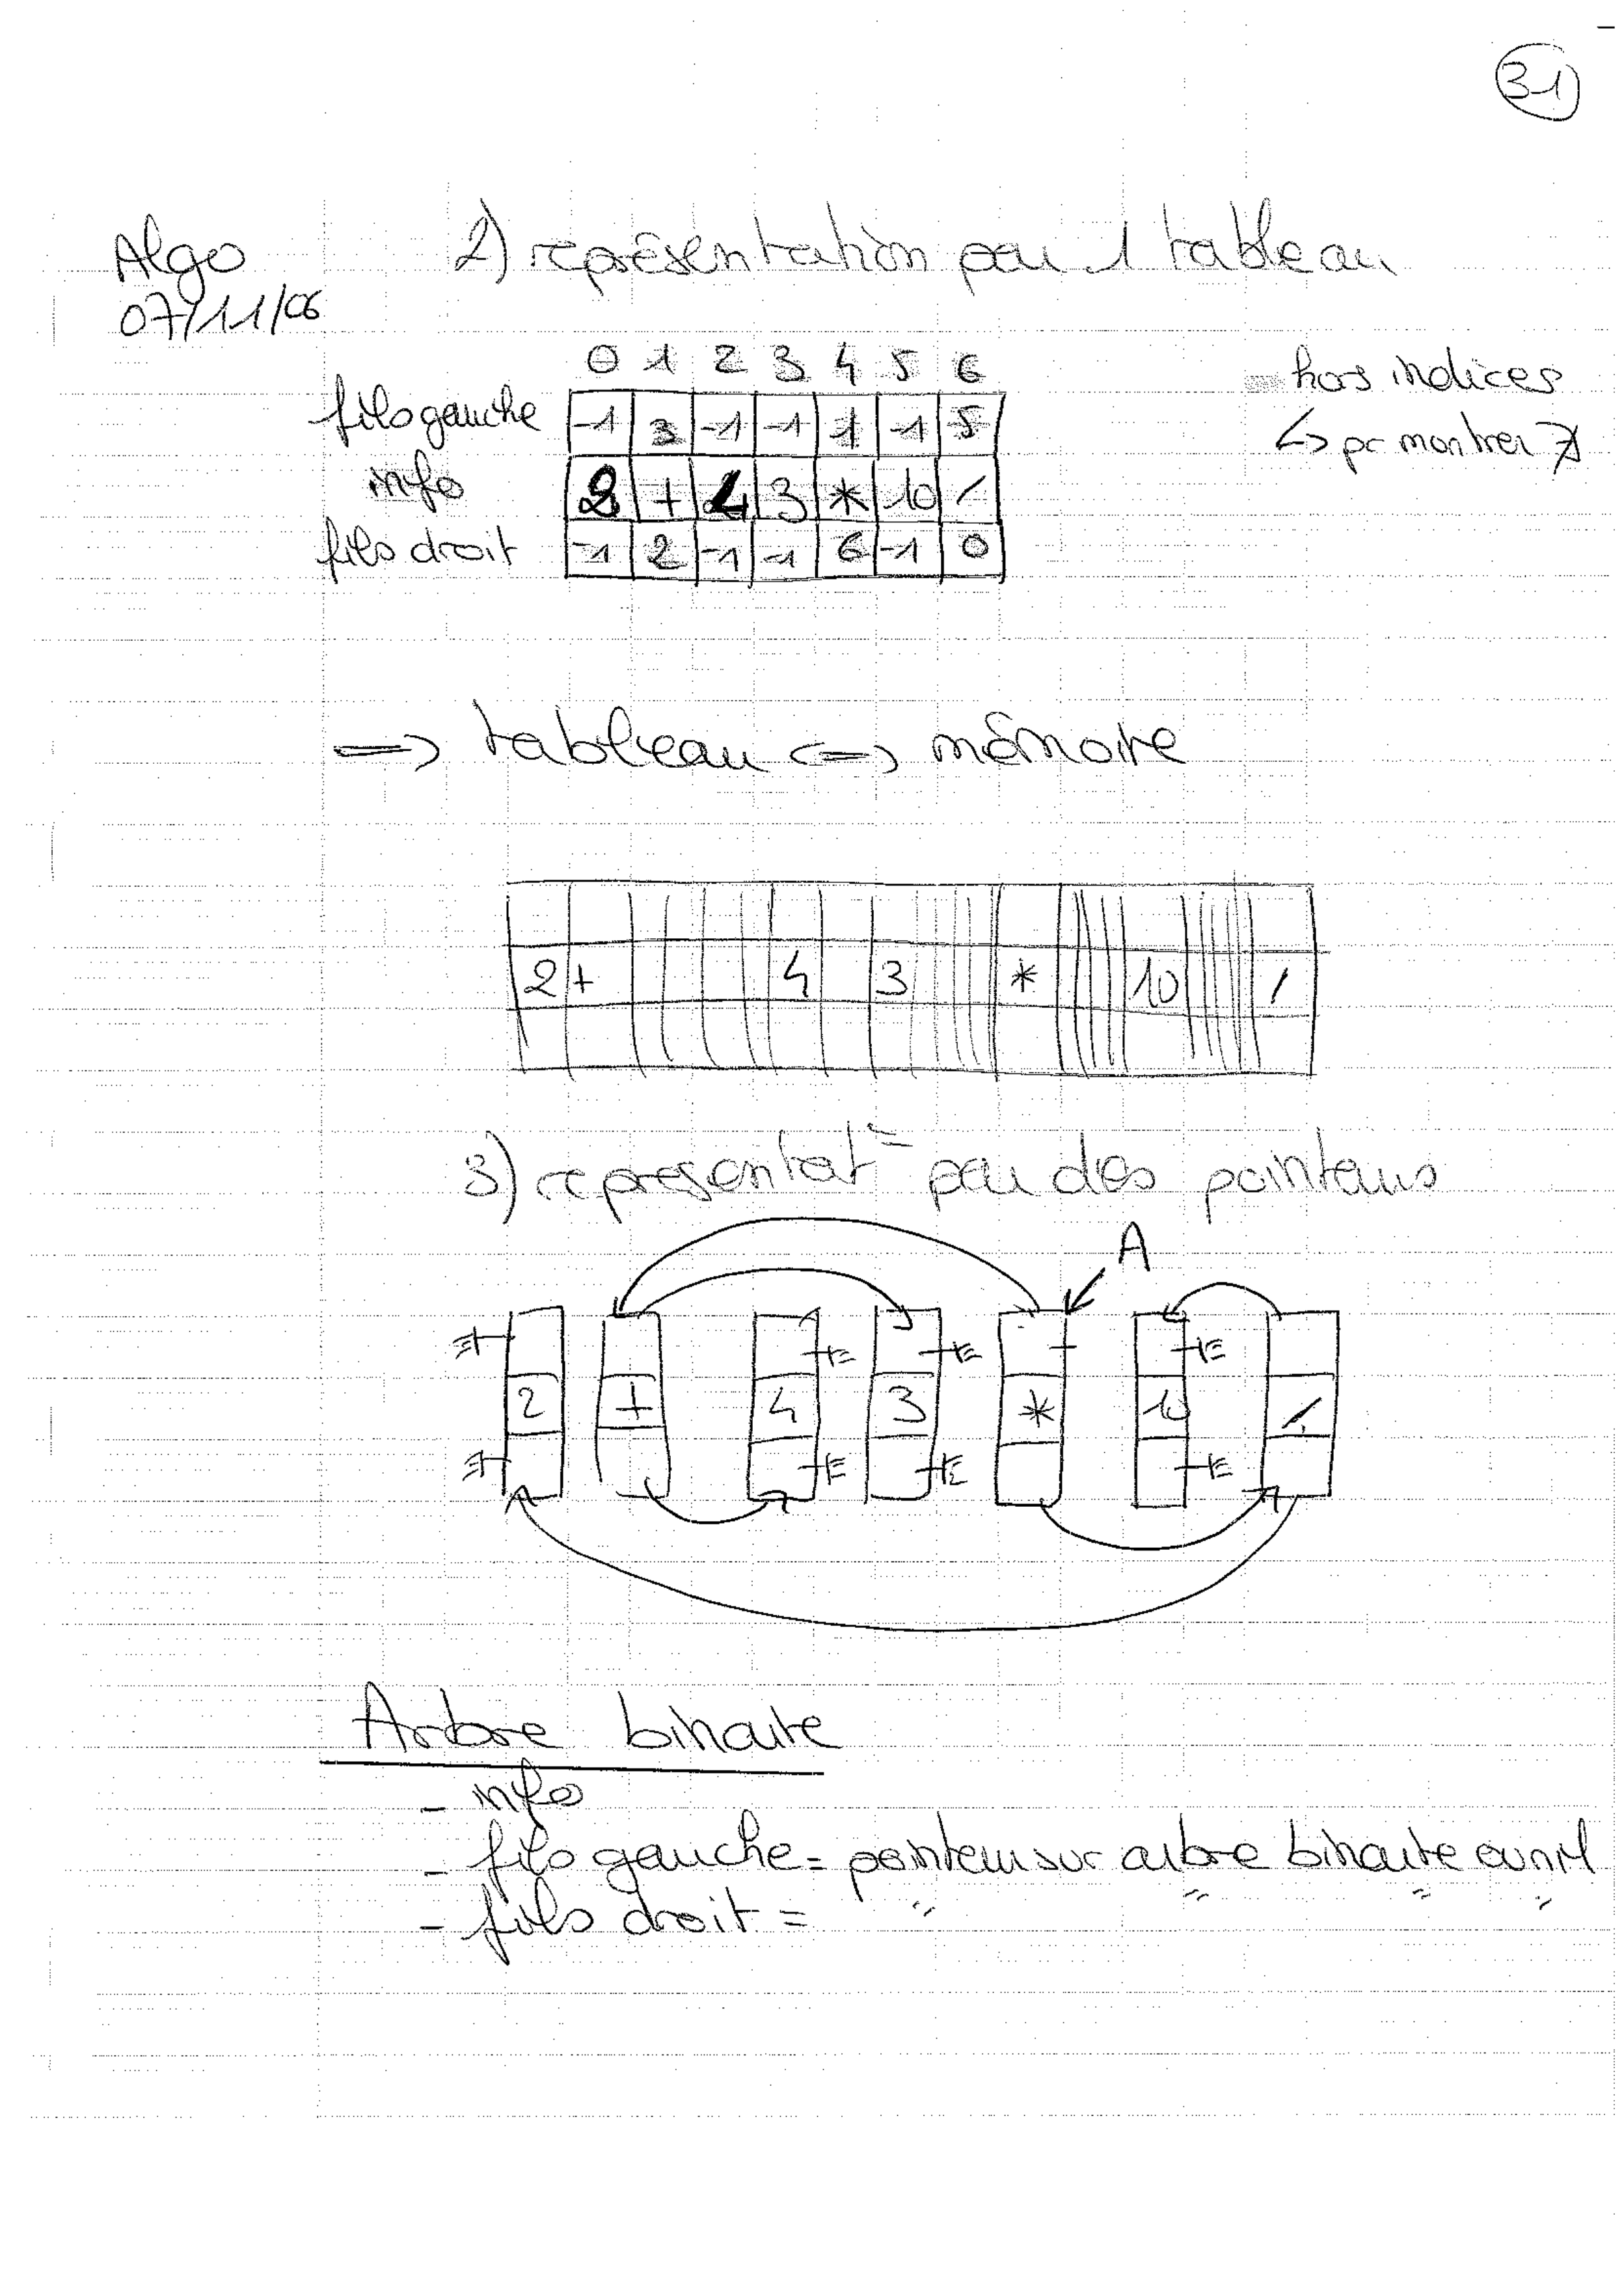 31
Algo
07/11/06
2) représentation par 1 tableau
0 1 2 3 4 5 6
fils gauche -1 3 -1 -1 1 -1 5
info 2 + 4 3 * 10 /
fils droit -1 2 -1 -1 6 -1 0
hors indices
↳ pr montrer ∄
=> tableau <=> mémoire
2 + 4 3 * 10 /
3) representat° par des pointeurs
A
2 + 4 3 * 10 /
Arbre binaire
- info
- fils gauche = pointeur sur arbre binaire ou nil
- fils droit = " " " "